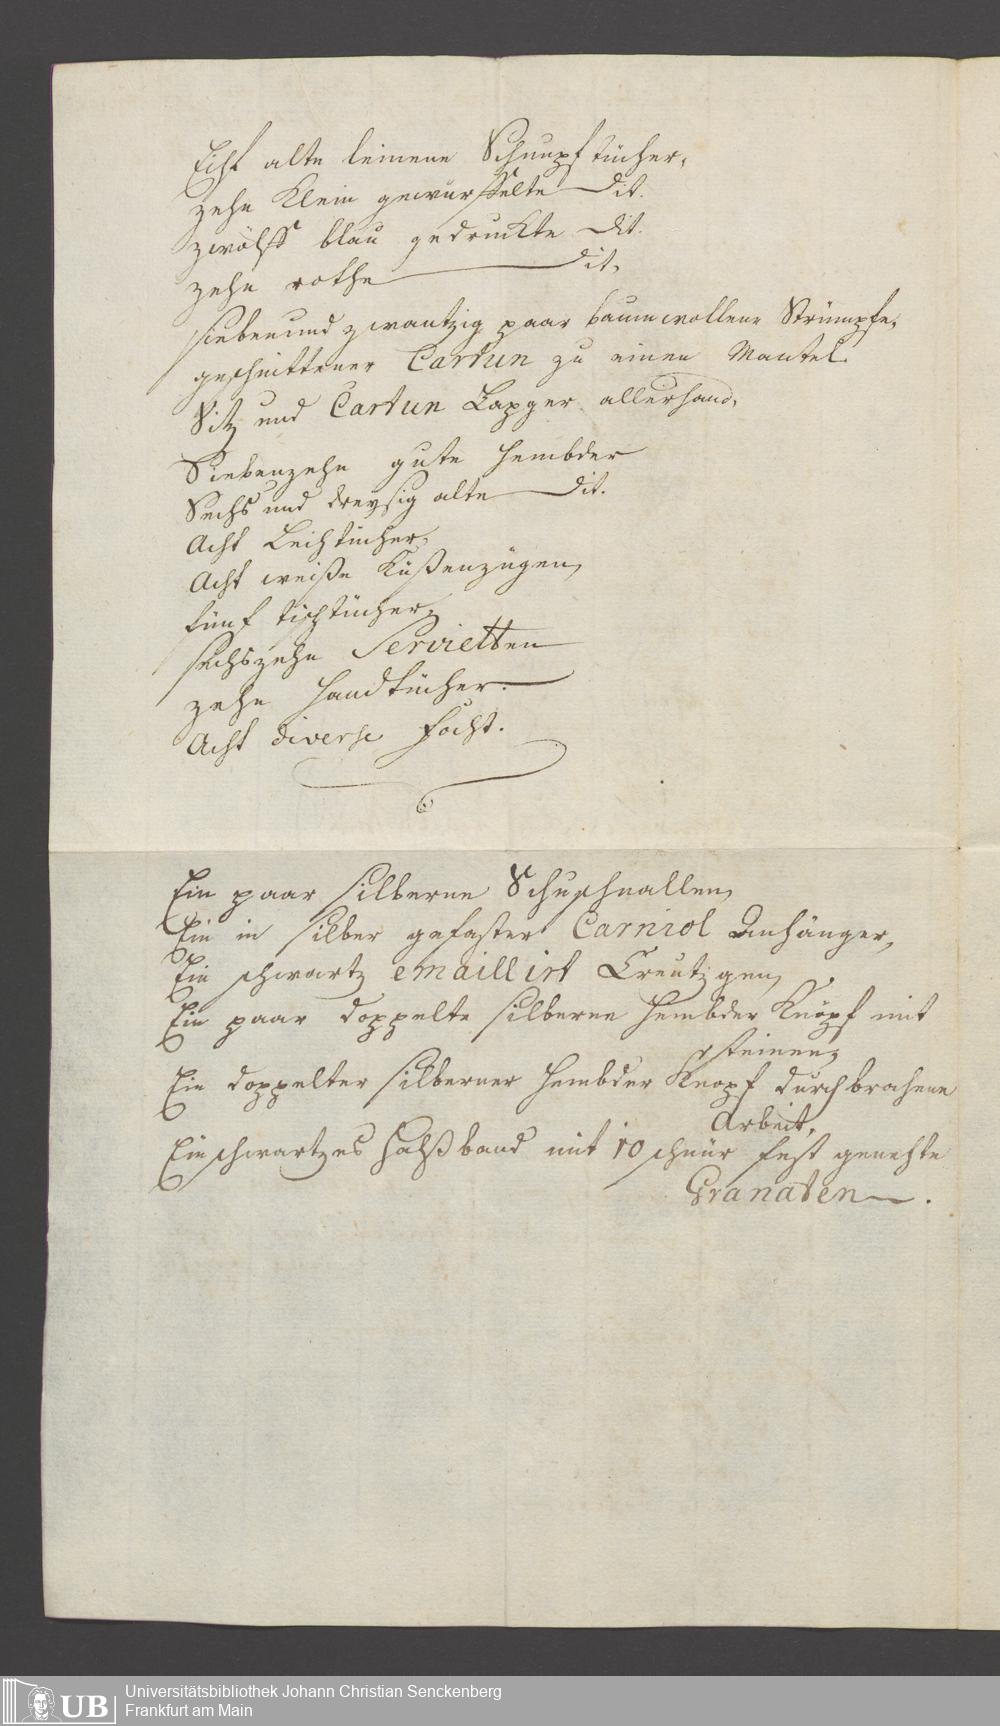 Acht alte leinene Schnupftücher,
zehn klein gewürffelte Dit.
zwölff blau gedruckte Dit.
zehn rothe Dit.
siebenundzwantzig paar baumwollene Strümpfe,
geschnittener Cartun zu einen Mantel
Zitz und Cartun Lapger allerhand,
Siebenzehn gute Hembder
Sechs und dreysig alte Dit.
Acht Leichtücher,
Acht weiße Küßenzügen,
fünf tischtücher,
sechszehn Servietten
zehn Handtücher.
Acht diverse
Ein paar silberne Schuschnallen,
Ein in silber gefaster Carniol Anhänger,
Ein schwartz emaillirt Creutzgen,
Ein paar doppelte silberne Hembder Knöpf mit
steinen,
Ein doppelter silberner Hembder Knopf durchbrochene
Arbeit,
Ein schwartzes Halßband mit 10 schnür fest genehte
Granaten.
UB
Universitätsbibliothek Johann Christian Senckenberg
Frankfurt am Main